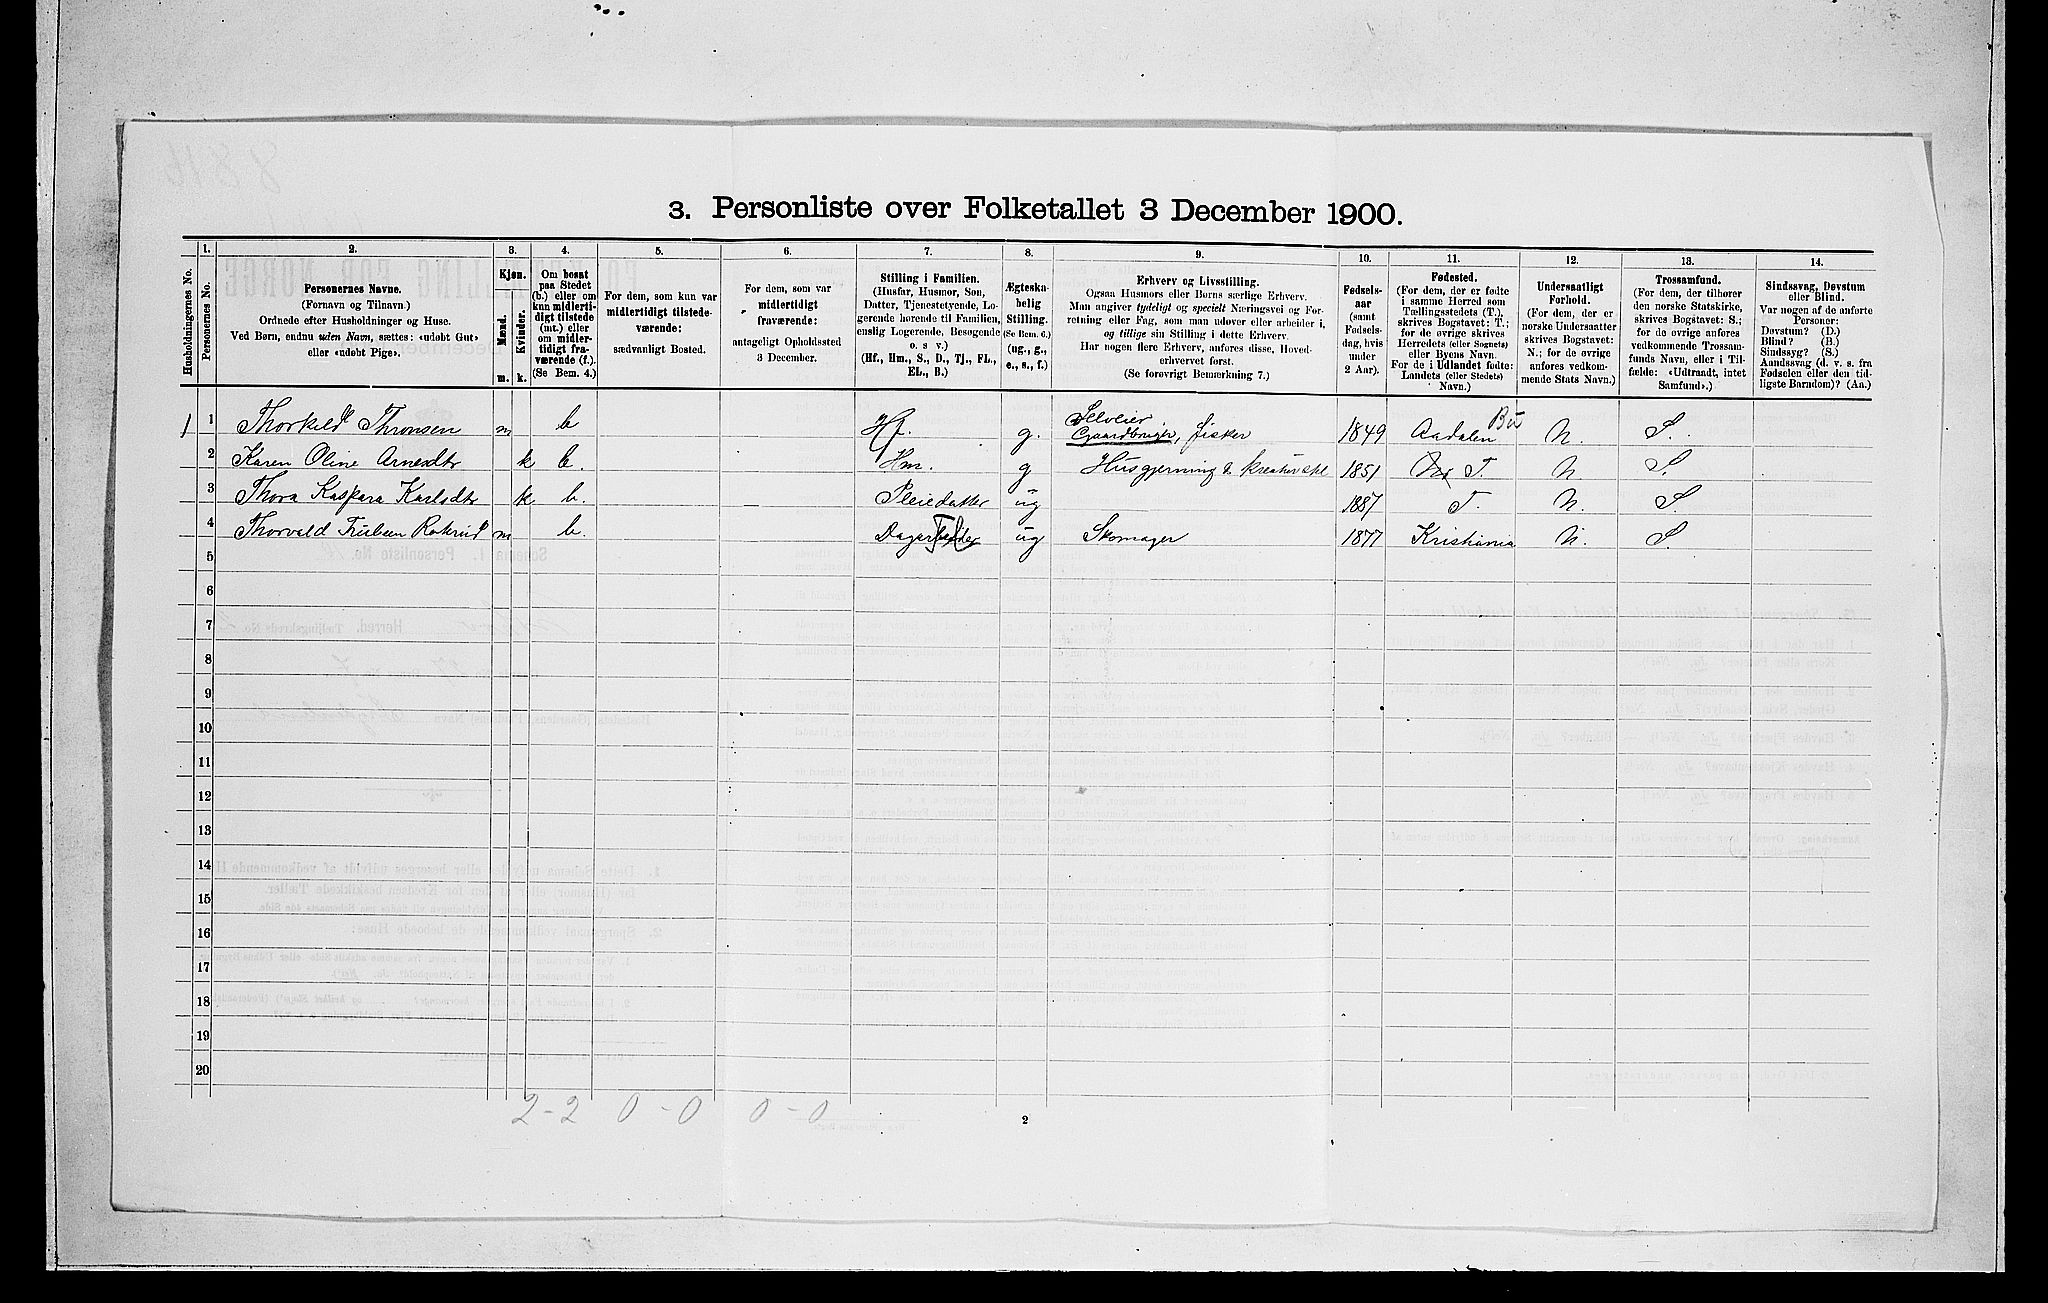 3. Personliste over Folketallet 3 December 1900.
Husholdningernes No.
1.
Personernes No.
2.
Personernes Navne.
(Fornavn og Tilnavn.)
Ordnede efter Husholdninger og Huse.
Ved Børn, endnu uden Navn, sættes: «udøbt Gut»
eller «udøbt Pige».
3.
Kjøn.
Mænd.
Kvinder.
m. k.
4.
Om bosat
paa Stedet
(b.) eller om
kun midlerti-
digt tilstede
(mt.) eller
om midler-
tidigt fra-
værende (f.).
(Se Bem. 4.)
5.
For dem, som kun var
midlertidigt tilstede-
værende:
sædvanligt Bosted.
6.
For dem, som var
midlertidigt
fraværende:
antageligt Opholdssted
3 December.
7.
Stilling i Familien.
(Husfar, Husmor, Søn,
Datter, Tjenestetyende, Lo-
gerende hørende til Familien,
enslig Logerende, Besøgende
o. s v.)
(Hf., Hm., S., D., Tj., FL.,
EL., B.)
8.
Ægteska-
belig
Stilling.
(Se Bem. 6.)
(ug., g.,
e., s., f.)
9.
Erhverv og Livsstilling.
Ogsaa Husmors eller Børns særlige Erhverv.
Man angiver tydeligt og specielt Næringsvei og For-
retning eller Fag, som man udøver eller arbeider i,
og tillige sin Stilling i dette Erhverv.
Har nogen flere Erhverv, anføres disse, Hoved-
erhvervet først.
(Se forøvrigt Bemærkning 7.)
10.
Fødsels-
aar
(samt
Fødsels-
dag, hvis
under
2 Aar).
11.
Fødested.
(For dem, der er fødte
i samme Herred som
Tællingsstedets (T.),
skrives Bogstavet: T.;
for de øvrige skrives
Herredets (eller Sognets)
eller Byens Navn.
For de i Udlandet fødte:
Landets (eller Stedets)
Navn.)
12.
Undersaatligt
Forhold.
(For dem, der er
norske Undersaatter
skrives Bogstavet:
N.; for de øvrige
anføres vedkom-
mende Stats Navn.)
13.
Trossamfund.
(For dem, der tilhører
den norske Statskirke,
skrives Bogstavet: S.;
for de øvrige anføres
vedkommende Trossam-
funds Navn, eller i Til-
fælde: «Udtraadt, intet
Samfund».)
14.
Sindssvag, Døvstum
eller Blind.
Var nogen af de anførte
Personer:
Døvstum? (D.)
Blind? (B.)
Sindssyg? (S.)
Aandssvag (d. v. s. fra
Fødselen eller den tid-
ligste Barndom)? (Aa.)
1 1 Thorkild Thronsen m b Hf. g. Selveier Gaardbruger, fisker 1849 Aadalen Bu N. S.
2 Karen Oline Arnesdtr k b. Hm. g Husgjerning & kreaturstel 1851 T. N S.
3 Thora Kaspara Karlsdtr k b. Pleiedatter ug 1887 T. N. S
4 Thorvald m b. Dagarbeider FL ug Skomager 1877 Kristiania N. S.
5
6
7
8
9
10
11
12
13
14
15
16
17
18
19
20
2 - 2 0 - 0 0 - 0
2